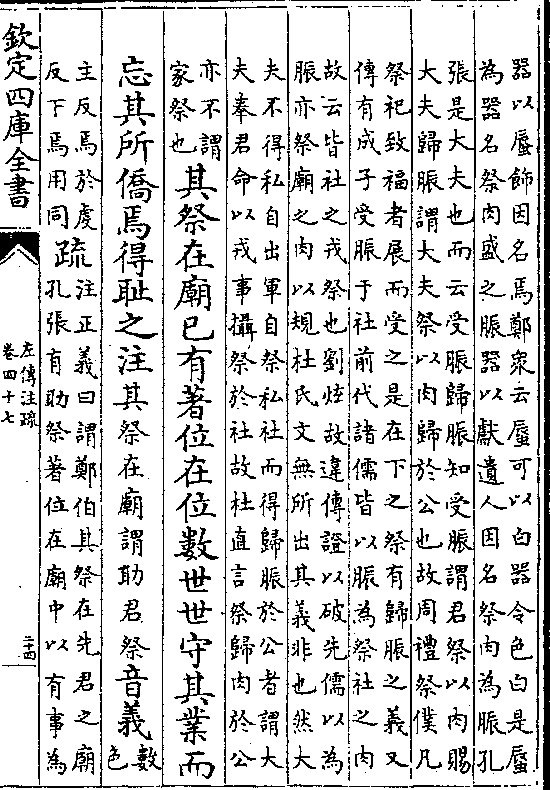 器以蜃飾因名焉鄭衆云蜃可以白器令色白是蜃
為器名祭肉盛之脤器以獻遺人因名祭肉為脤孔
張是大夫也而云受脤歸脤知受脤謂君祭以肉賜
大夫歸脤謂大夫祭以肉歸於公也故周禮祭僕凡
祭祀致福者展而受之是在下之祭有歸脤之義又
傳有成子受脤于社前代諸儒皆以脤為祭社之肉
故云皆社之戎祭也劉炫故違傳證以破先儒以為
脤亦祭廟之肉以規杜氏文無所出其義非也然大
夫不得私自出軍自祭私社而得歸脤於公者謂大
夫奉君命以戎事攝祭於社故杜直言祭歸肉於公
亦不謂
家祭也
其祭在廟已有著位在位數世世守其業而
忘其所僑焉得耻之注其祭在廟謂助君祭音義
數
色
主反焉於虔
反下焉用同
疏
注正義曰謂鄭伯其祭在先君之廟
孔張有助祭著位在廟中以有事為
欽定四庫全書
左傳注疏
卷四十七
二十四